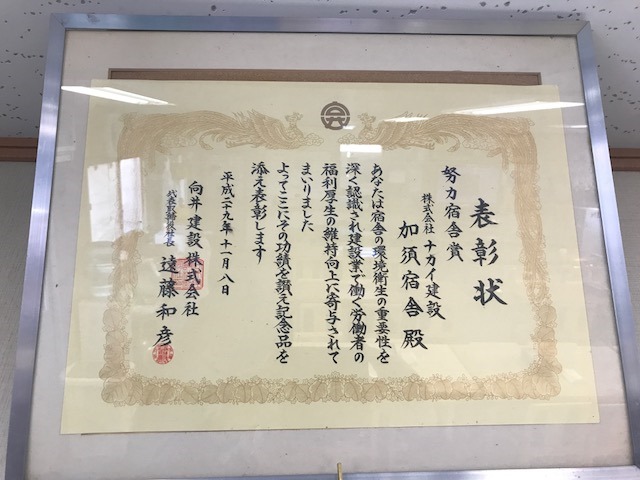 表彰状
努力宿舎賞
株式会社 ナカイ建設
加須宿舎殿
あなたは宿舎の環境衛生の重要性を
深く認識され建設業で働く労働者の
福利厚生の維持向上に寄与されて
まいりました
よってここにその功績を讃え記念品を
添え表彰します
平成二十九年十一月八日
向井建設株式会社
代表取締役社長 遠藤和彦